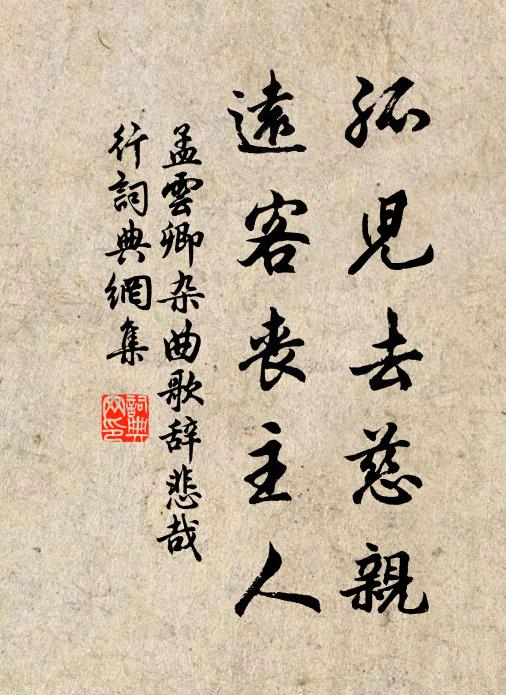 孤兒去慈親
遠客喪主人
孟雲卿杂曲歌辞悲哉
行詞典網集
詞典网印